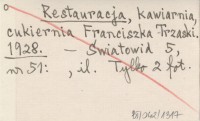 Restauracja, kawiarnia,
cukiernia Franciszka Trzaski.
1928. – Światowid 5,
nr 51: , il. Tylko 2 fot.